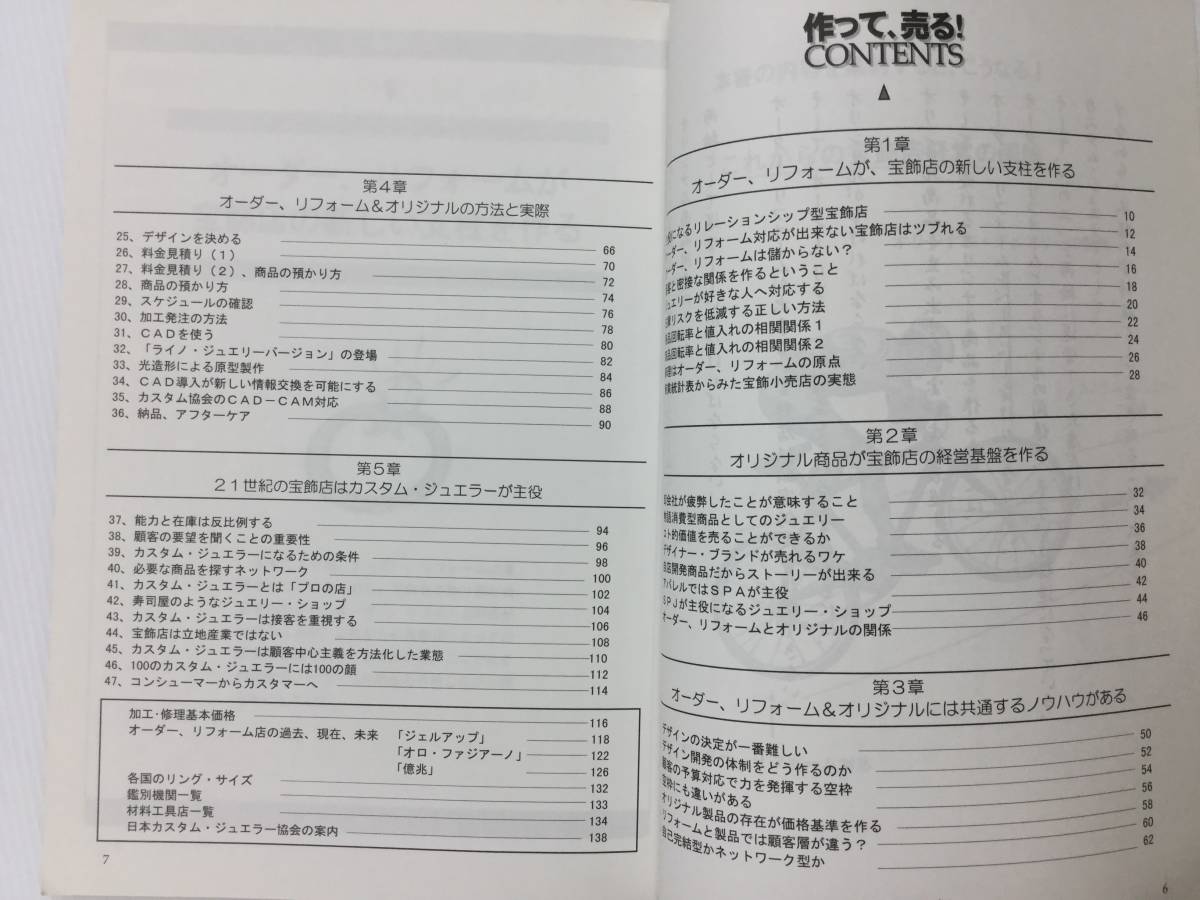 作って、売る！
CONTENTS
第１章
オーダー、リフォームが、宝飾店の新しい支柱を作る
になるリレーションシップ型宝飾店 10
ーダー、リフォーム対応が出来ない宝飾店はツブれる 12
ーダー、リフォームは儲からない？ 14
と密接な関係を作るということ 16
ュエリーが好きな人へ対応する 18
リスクを低減する正しい方法 20
品回転率と値入れの相関関係１ 22
品回転率と値入れの相関関係２ 24
はオーダー、リフォームの原点 26
統計表からみた宝飾小売店の実態 28
第２章
オリジナル商品が宝飾店の経営基盤を作る
会社が疲弊したことが意味すること 32
消費型商品としてのジュエリー 34
ト的価値を売ることができるか 36
デザイナー・ブランドが売れるワケ 38
店開発商品だからストーリーが出来る 40
アパレルではＳＰＡが主役 42
ＳＰＪが主役になるジュエリー・ショップ 44
オーダー、リフォームとオリジナルの関係 46
第３章
オーダー、リフォーム＆オリジナルには共通するノウハウがある
デザインの決定が一番難しい 50
デザイン開発の体制をどう作るのか 52
顧客の予算対応で力を発揮する空枠 54
空枠にも違いがある 56
オリジナル製品の存在が価格基準を作る 58
リフォームと製品では顧客層が違う？ 60
自己完結型かネットワーク型か 62
6
第４章
オーダー、リフォーム＆オリジナルの方法と実際
25、デザインを決める 66
26、料金見積り（１） 70
27、料金見積り（２）、商品の預かり方 72
28、商品の預かり方 74
29、スケジュールの確認 76
30、加工発注の方法 78
31、ＣＡＤを使う 80
32、「ライノ・ジュエリーバージョン」の登場 82
33、光造形による原型製作 84
34、ＣＡＤ導入が新しい情報交換を可能にする 86
35、カスタム協会のＣＡＤ－ＣＡＭ対応 88
36、納品、アフターケア 90
第５章
２１世紀の宝飾店はカスタム・ジュエラーが主役
37、能力と在庫は反比例する 94
38、顧客の要望を聞くことの重要性 96
39、カスタム・ジュエラーになるための条件 98
40、必要な商品を探すネットワーク 100
41、カスタム・ジュエラーとは「プロの店」 102
42、寿司屋のようなジュエリー・ショップ 104
43、カスタム・ジュエラーは接客を重視する 106
44、宝飾店は立地産業ではない 108
45、カスタム・ジュエラーは顧客中心主義を方法化した業態 110
46、100のカスタム・ジュエラーには100の顔 112
47、コンシューマーからカスタマーへ 114
加工・修理基本価格 116
オーダー、リフォーム店の過去、現在、未来 「ジェルアップ」 118
「オロ・ファジアーノ」 122
「億兆」 126
各国のリング・サイズ 132
鑑別機関一覧 133
材料工具店一覧 134
日本カスタム・ジュエラー協会の案内 138
7